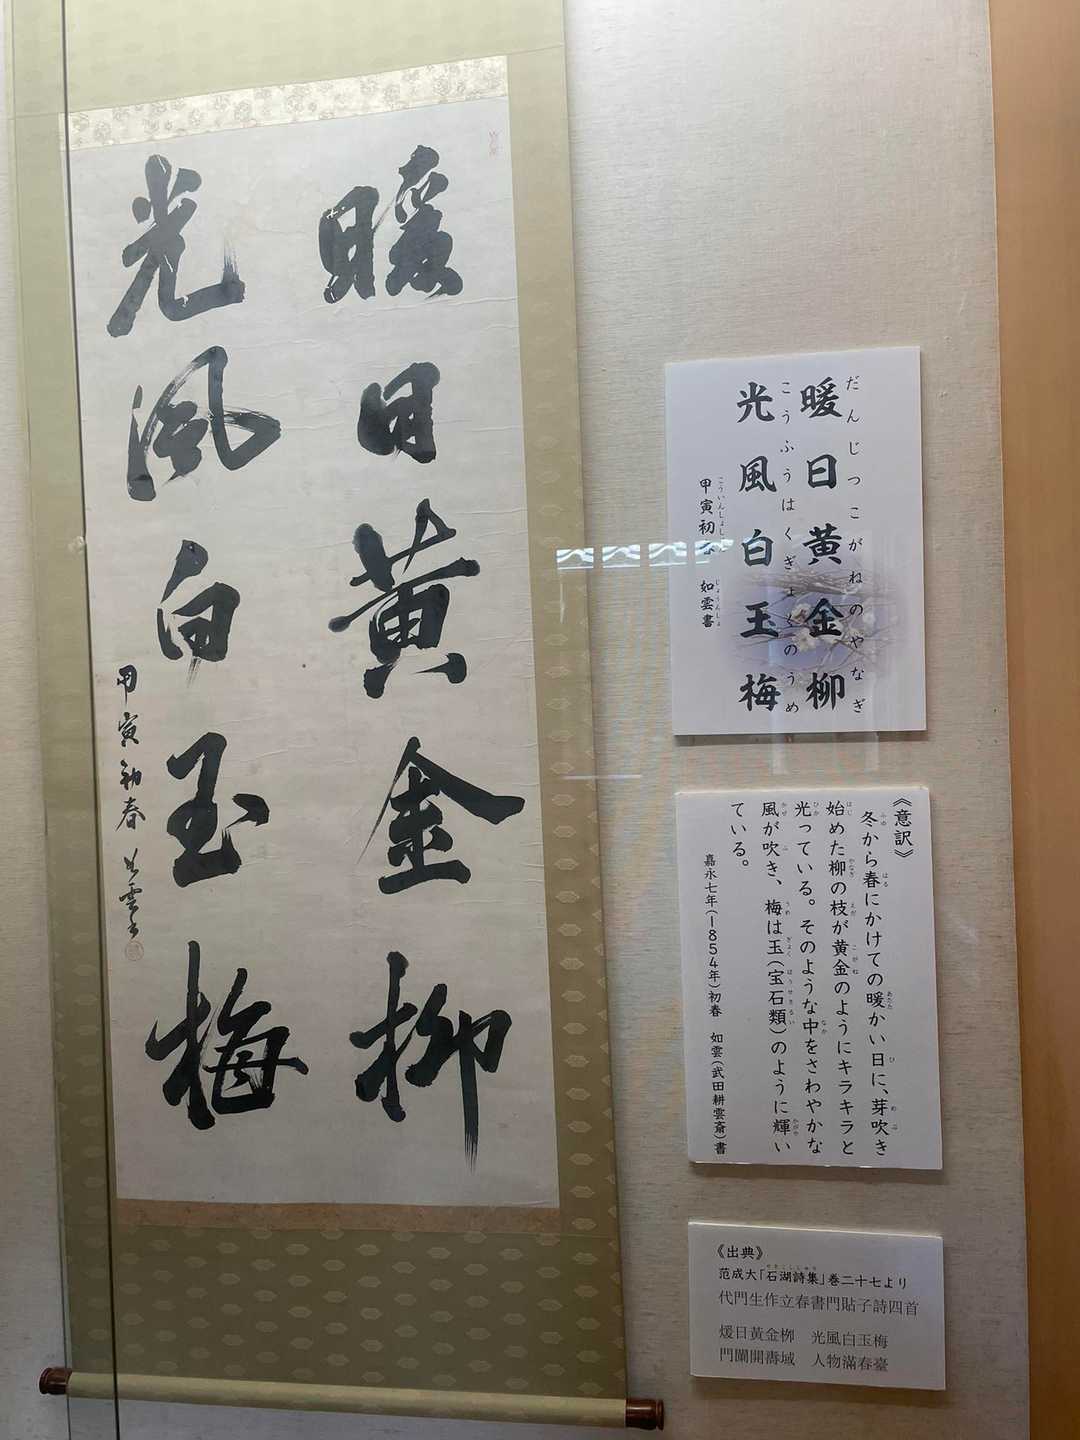 暖日黄金柳
光風白玉梅
甲寅初春 如雲書
だんじつこがねのやなぎ
暖日黄金柳
こうふうはくぎょくのうめ
光風白玉梅
こういんしょしゅん じょうんしょ
甲寅初春 如雲書
《意訳》
冬から春にかけての暖かい日に、芽吹き
始めた柳の枝が黄金のようにキラキラと
光っている。そのような中をさわやかな
風が吹き、梅は玉(宝石類)のように輝い
ている。
嘉永七年(1854年)初春 如雲(武田耕雲斎)書
《出典》
范成大「石湖詩集」巻二十七より
代門生作立春書門貼子詩四首
煖日黃金栁 光風白玉梅
門闌開壽域 人物滿春臺